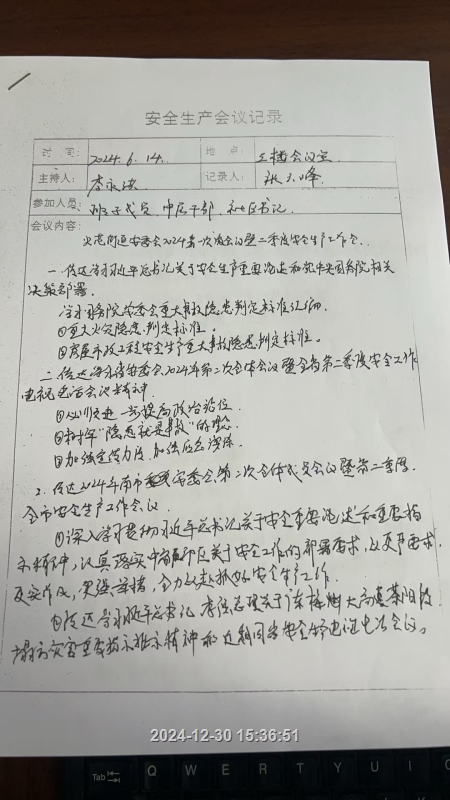 安全生产会议记录
时 间: 2024.6.14. 地 点: 三楼会议室
主持人: 记录人:
参加人员: 班子成员 中层干部 社区书记
会议内容:
街道安委会2024第二次会议暨二季度安全生产工作会
一、传达学习习近平总书记关于安全生产重要论述和党中央国务院相关
决策部署。
学习国务院安委会重大事故隐患判定标准汇编
①重大火灾隐患判定标准。
②房屋市政工程安全生产重大事故隐患判定标准。
二、传达 省安委会2024年第二次全体会议暨全省第二季度安全工作
电视电话会议精神
①认识进一步提高政治站位
②树牢"隐患就是事故"的理念
③加强宣传力度,加强应急演练
2、传达2024年 市安委会第二次全体成员会议暨第二季度
全市安全生产工作会议。
①深入学习贯彻习近平总书记关于安全重要论述和重要指
示精神,认真落实中 关于安全工作的部署要求,以更严要求
更实作风,更强举措,全力以赴抓好安全生产工作.
②传达学习习近平总书记 李强总理关于广东梅州大高速茶阳段
塌方灾害重要指示批示精神和 全国安全 电视电话会议。
2024-12-30 15:36:51
Tab Q W E R T Y U I